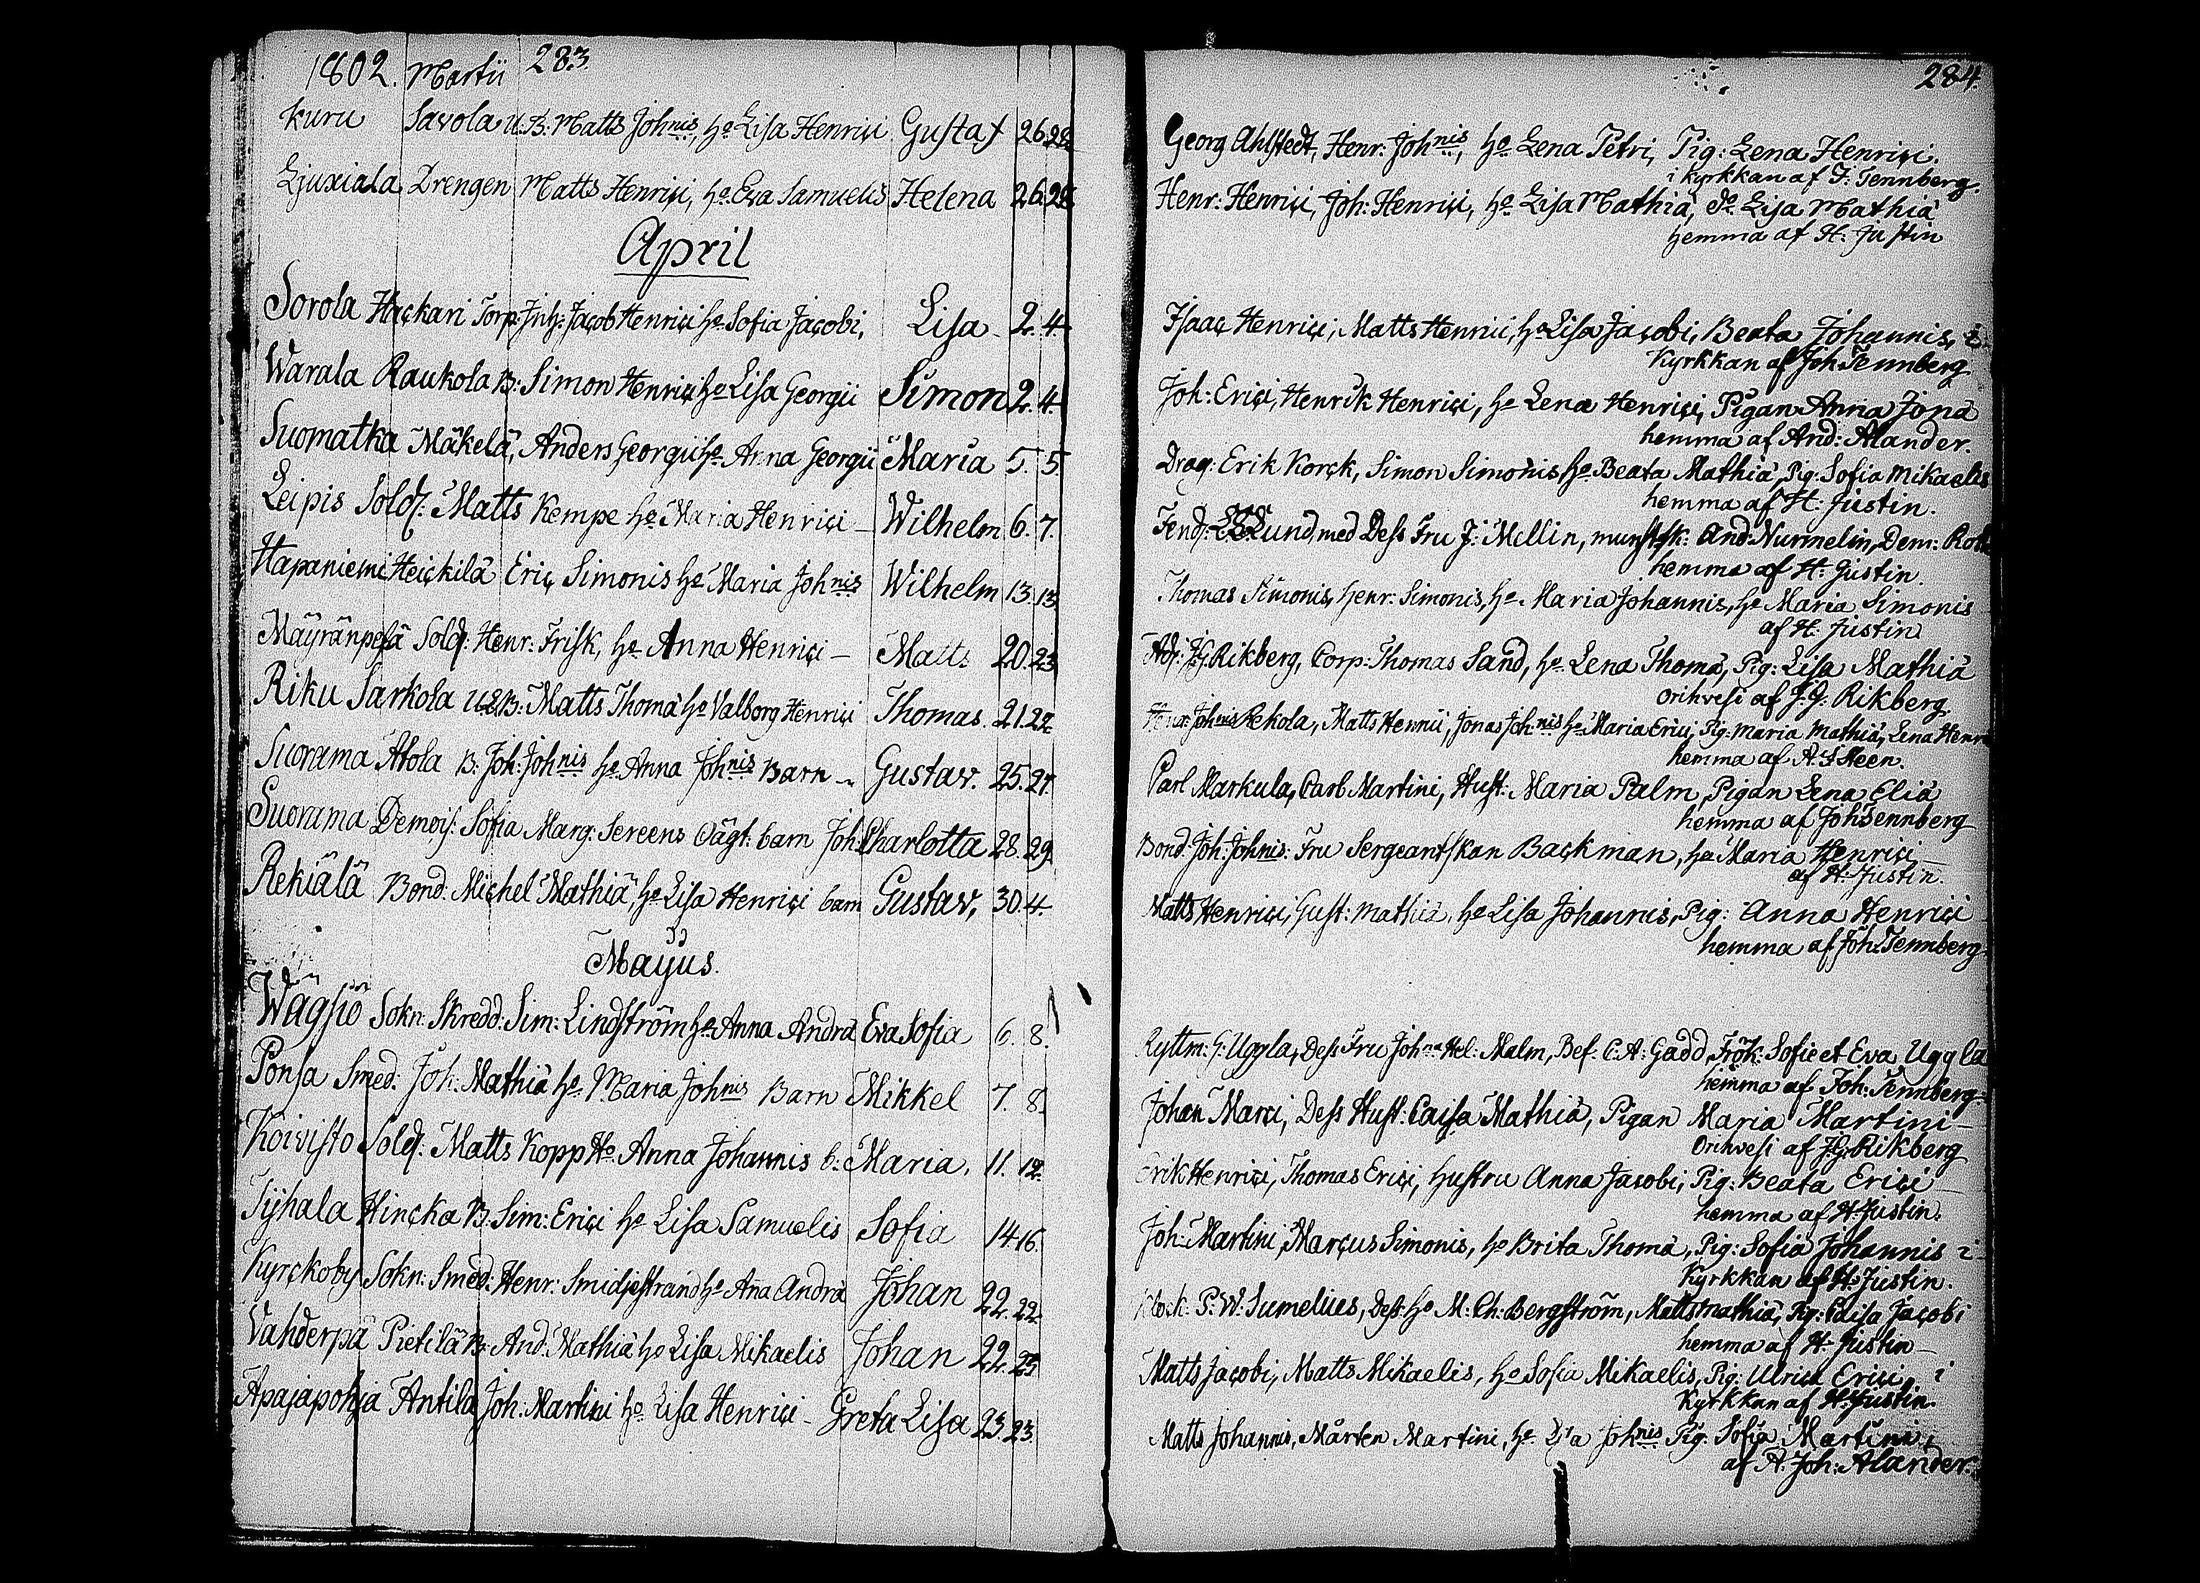 1802. Martii 283.
Kuru Savola U.B: Matts Johnis, Ho Lisa Henrici Gustaf 26. 28.
Ljuxiala Drengen Matts Henrici, Ho Eva Samuelis Helena 26. 28.
April
Sorola Hackari Torp: Inh: Jacob Henrici Ho Sofia Jacobi, Lisa 2. 4.
Warala Raukola B: Simon Henrici Ho Lisa Georgii Simon 2. 4.
Suomatka Mäkelä, Anders Georgii Ho Anna Georgii Maria 5. 5.
Leipis Sold: Matts Kempe Ho Maria Henrici — Wilhelm 6. 7.
Hapaniemi Heickilä Eric Simonis Ho Maria Johnis Wilhelm 13. 13.
Mäyränpesä Sold: Henr: Frisk, Ho Anna Henrici — Matts 20. 23.
Riku Sarkola U&B: Matts Thomä Ho Valborg Henrici Thomas. 21. 22.
Suorama Atola B: Joh: Johnis Ho Anna Johnis Barn — Gustav. 25. 27.
Suorama Demois: Sofia Marg: Sereens Oägt: barn Joh: Charlotta 28. 29.
Rekiälä Bond: Michel Mathiä, Ho Lisa Henrici barn Gustav, 30. 4.
Mayus.
Wägsiö Sokn: Skredd: Sim: Lindström Ho Anna Andrä Eva Sofia 6. 8.
Ponsa Smed. Joh: Mathiä Ho Maria Johnis Barn Mikkel 7. 8.
Koivisto Sold: Matts Kopp Ho Anna Johannis b: Maria. 11. 12.
Tyhala Hincka B: Sim: Erici Ho Lisa Samuelis Sofia 14. 16.
Kyrckoby Sokn: Smed: Henr: Smidjestrand Ho Ana Andrä Johan 22. 22.
Vahderpä Pietilä B: And: Mathiä Ho Lisa Mikaelis Johan 22. 23.
Apajapohja Antila Joh: Martini Ho Lisa Henrici — Greta Lisa 23. 23.
284.
Georg Ahlstedt, Henr: Johnis, Ho Lena Petri, Pig: Lena Henrici.
i kyrkkan af J: Tennberg.
Henr: Henrici, Joh: Henrici, Ho Lisa Mathiä, do Lisa Mathiä
hemma af H: Justin
Isaac Henrici, Matts Henrici, Ho Lisa Jacobi, Beata Johannis, i
Kyrkkan af Joh Tennberg
Joh: Erici, Henrik Henrici, Ho Lena Henrici, Pigan Anna Jonä
hemma af And: Alander.
Drag: Erik Korck, Simon Simonis Ho Beata Mathiä, Pig: Sofia Mikaelis
hemma af H: Justin.
Fend: Lund, med Dess Fru J: Mellin, munstsk: And: Nurmelin, Dem: Rob
hemma af H: Justin.
Thomas Simonis, Henr: Simonis, Ho Maria Johannis, Ho Maria Simonis
af H: Justin
Adj: J:G: Rikberg, Corp: Thomas Sand, Ho Lena Thomä, Pig: Lisa Mathiä
Orihvesi af J:G: Rikberg
Henr: Johnis Rekola, Matts Henrici, Jonas Johnis Ho Maria Erici, Pig: Maria Mathiä, Lena Henr
hemma af A: F Heen.
Carl Markula, Carl Martini, Hust: Maria Palm, Pigan Lena Eliä
hemma af Joh: Tennberg
Bond: Joh: Johnis: Fru Sergeantskan Backman, Ho Maria Henrici —
af H: Justin.
Matts Henrici, Gust: Mathiä, Ho Lisa Johannis, Pig: Anna Henrici
hemma af Joh: Tennberg
Ryttm: G: Uggla, Dess Fru Johna Hel: Malm, Bef: C: A: Gadd, Frök: Sofie et Eva Uggla
hemma af Joh: Tennberg.
Johan Marci, Dess Hust: Caisa Mathiä, Pigan Maria Martini —
Orihvesi af J:G: Rikberg
Erik Henrici, Thomas Erici, Hustru Anna Jacobi, Pig: Beata Erici —
hemma af H: Justin.
Joh: Martini, Marcus Simonis, Ho Brita Thomä, Pig: Sofia Johannis i
Kyrkkan af H: Justin.
Klock: P: W: Sumelius, Dess Ho M: Ch: Bergström, Matts Mathiä, Pig: Caisa Jacobi
hemma af H: Justin —
Matts Jacobi, Matts Mikaelis, Ho Sofia Mikaelis, Pig: Ulrica Erici, i
Kyrkkan af H: Justin.
Matts Johannis, Mårten Martini, Ho Johnis Pig. Sofia Martini,
af A: Joh: Alander.